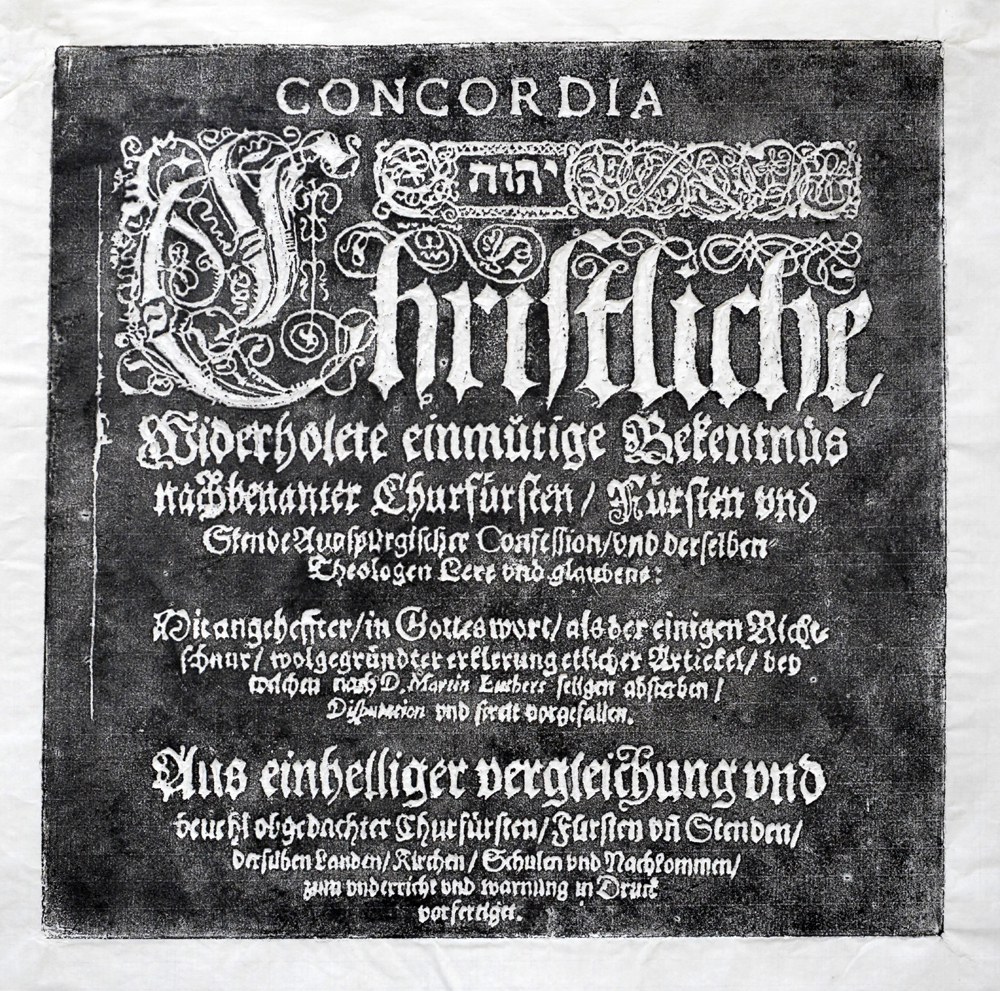 CONCORDIA
יהוה
Christliche,
Widerholete einmütige Bekentnüs
nachbenanter Churfürsten / Fürsten vnd
Stende Augspurgischer Confession / vnd derselben
Theologen Lere vnd glaubens:
Mit angeheffter / in Gottes wort / als der einigen Richt-
schnur / wolgegründter erklerung etlicher Artickel / bey
welchen nach D. Martin Luthers seligen absterben /
Disputation vnd streit vorgefallen.
Aus einhelliger vergleichung vnd
beuehl obgedachter Churfürsten / Fürsten vñ Stenden /
derselben Landen / Kirchen / Schulen vnd Nachkommen /
zum vnderricht vnd warnung in Druck
vorfertiget.